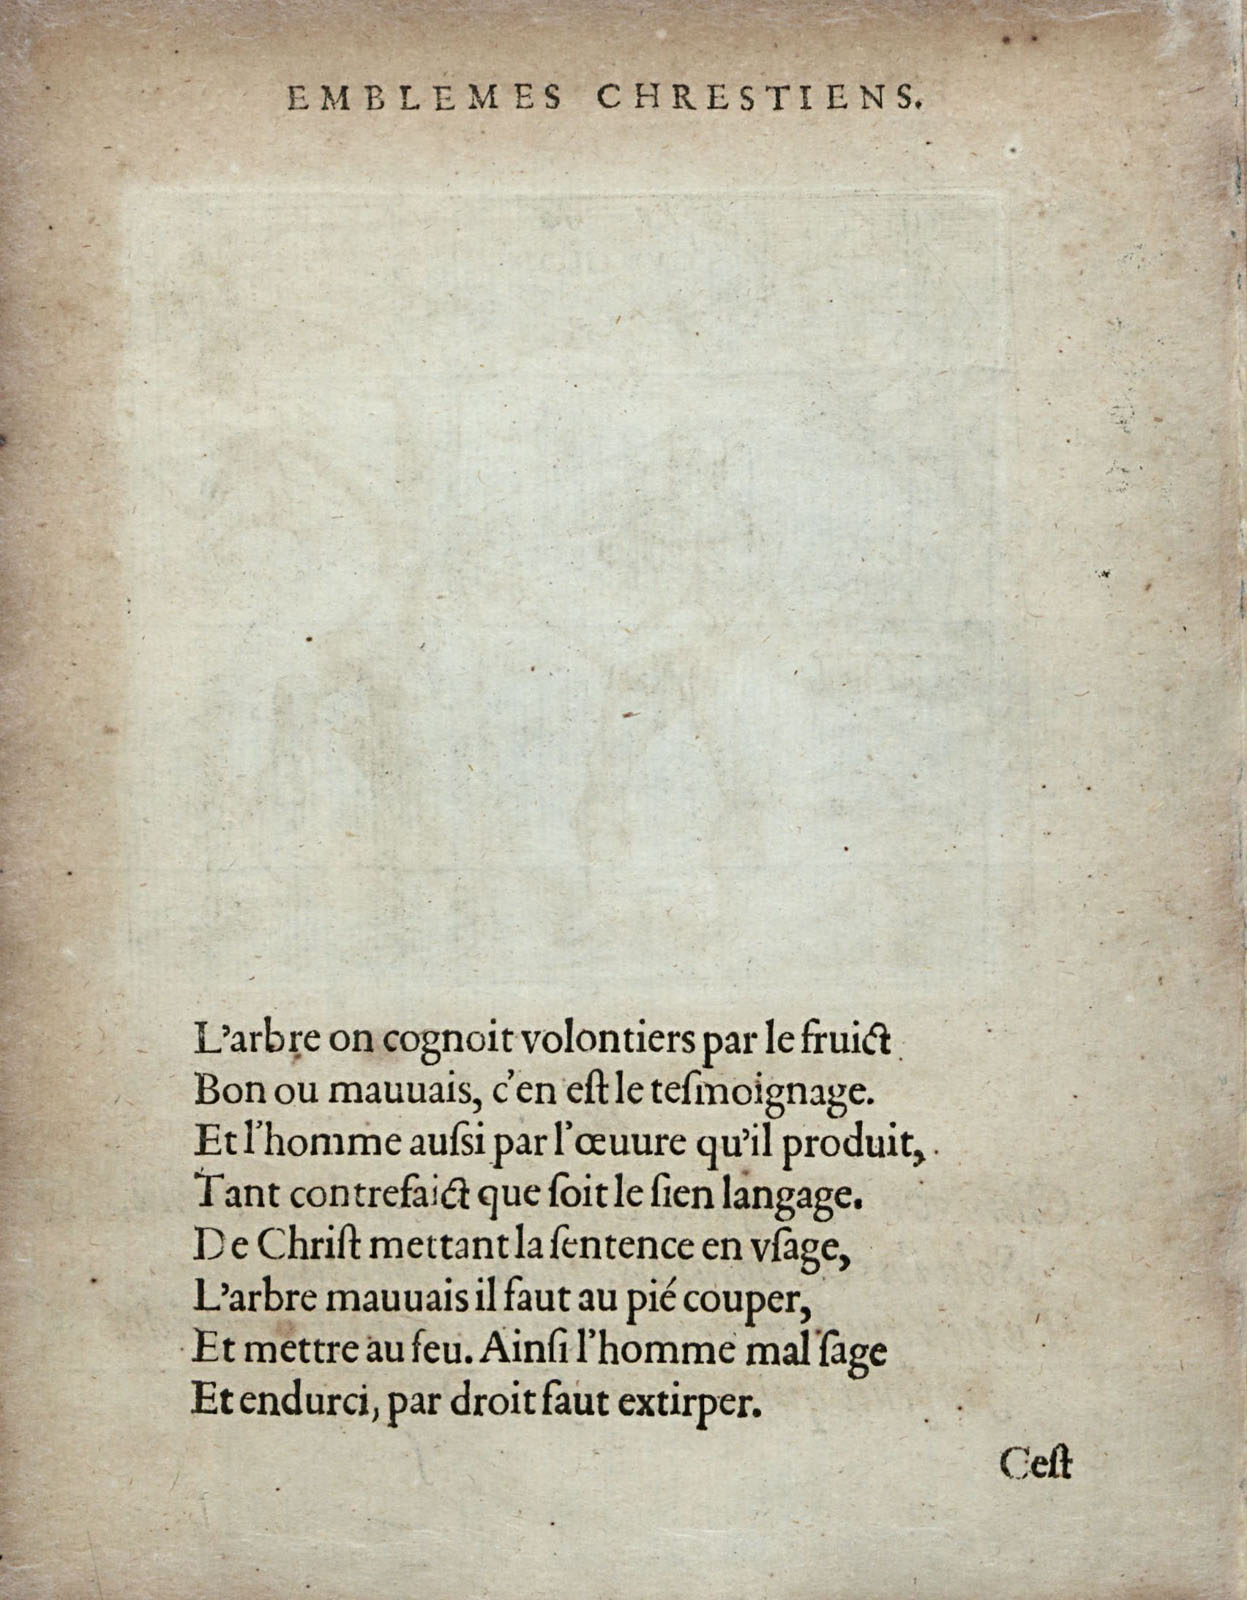 EMBLEMES CHRESTIENS.
L'arbre on cognoit volontiers par le fruict
Bon ou mauuais, c'en eſt le teſmoignage.
Et l'homme auſsi par l'œuure qu'il produit,
Tant contrefaict que ſoit le ſien langage.
De Chriſt mettant la ſentence en vſage,
L'arbre mauuais il faut au pié couper,
Et mettre au feu. Ainſi l'homme mal ſage
Et endurci, par droit faut extirper.
Ceſt